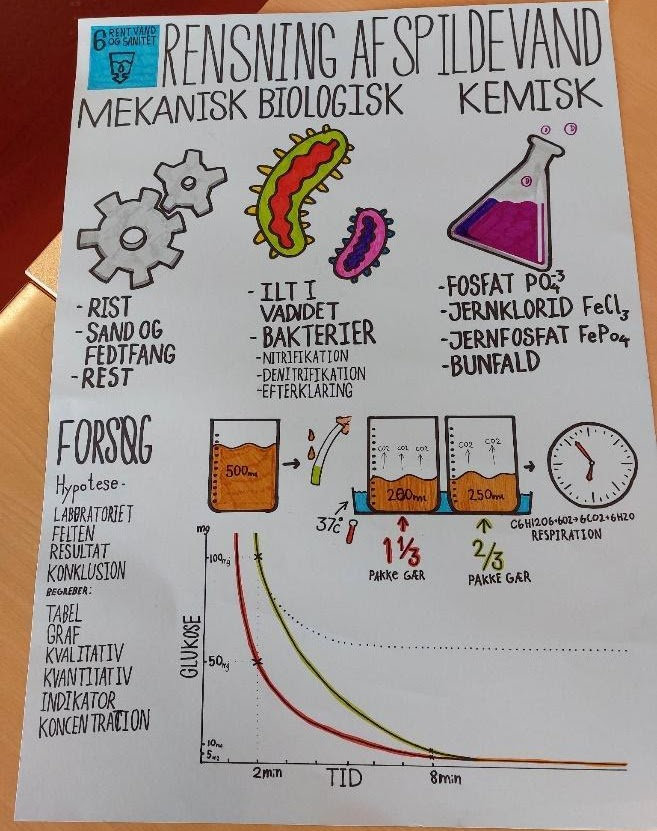 6 RENT VAND
OG SANITET
RENSNING AF SPILDEVAND
MEKANISK BIOLOGISK KEMISK
- RIST
- SAND OG
FEDTFANG
- REST
- ILT I
VADIDET
- BAKTERIER
- NITRIFIKATION
- DENITRIFIKATION
- EFTERKLARING
- FOSFAT PO₄⁻³
- JERNKLORID FeCl₃
- JERNFOSFAT FePO₄
- BUNFALD
FORSØG
Hypotese -
LABORATORIET
FELTEN
RESULTAT
KONKLUSION
BEGREBER:
TABEL
GRAF
KVALITATIV
KVANTITATIV
INDIKATOR
KONCENTRATION
500ml
CO2 CO2 CO2
CO2 CO2
250ml
37°C
1 1/3
PAKKE GÆR
2/3
PAKKE GÆR
C6H12O6+6O2→6CO2+6H2O
RESPIRATION
mg
100mg
50mg
10mg
5mg
GLUKOSE
2min TID 8min